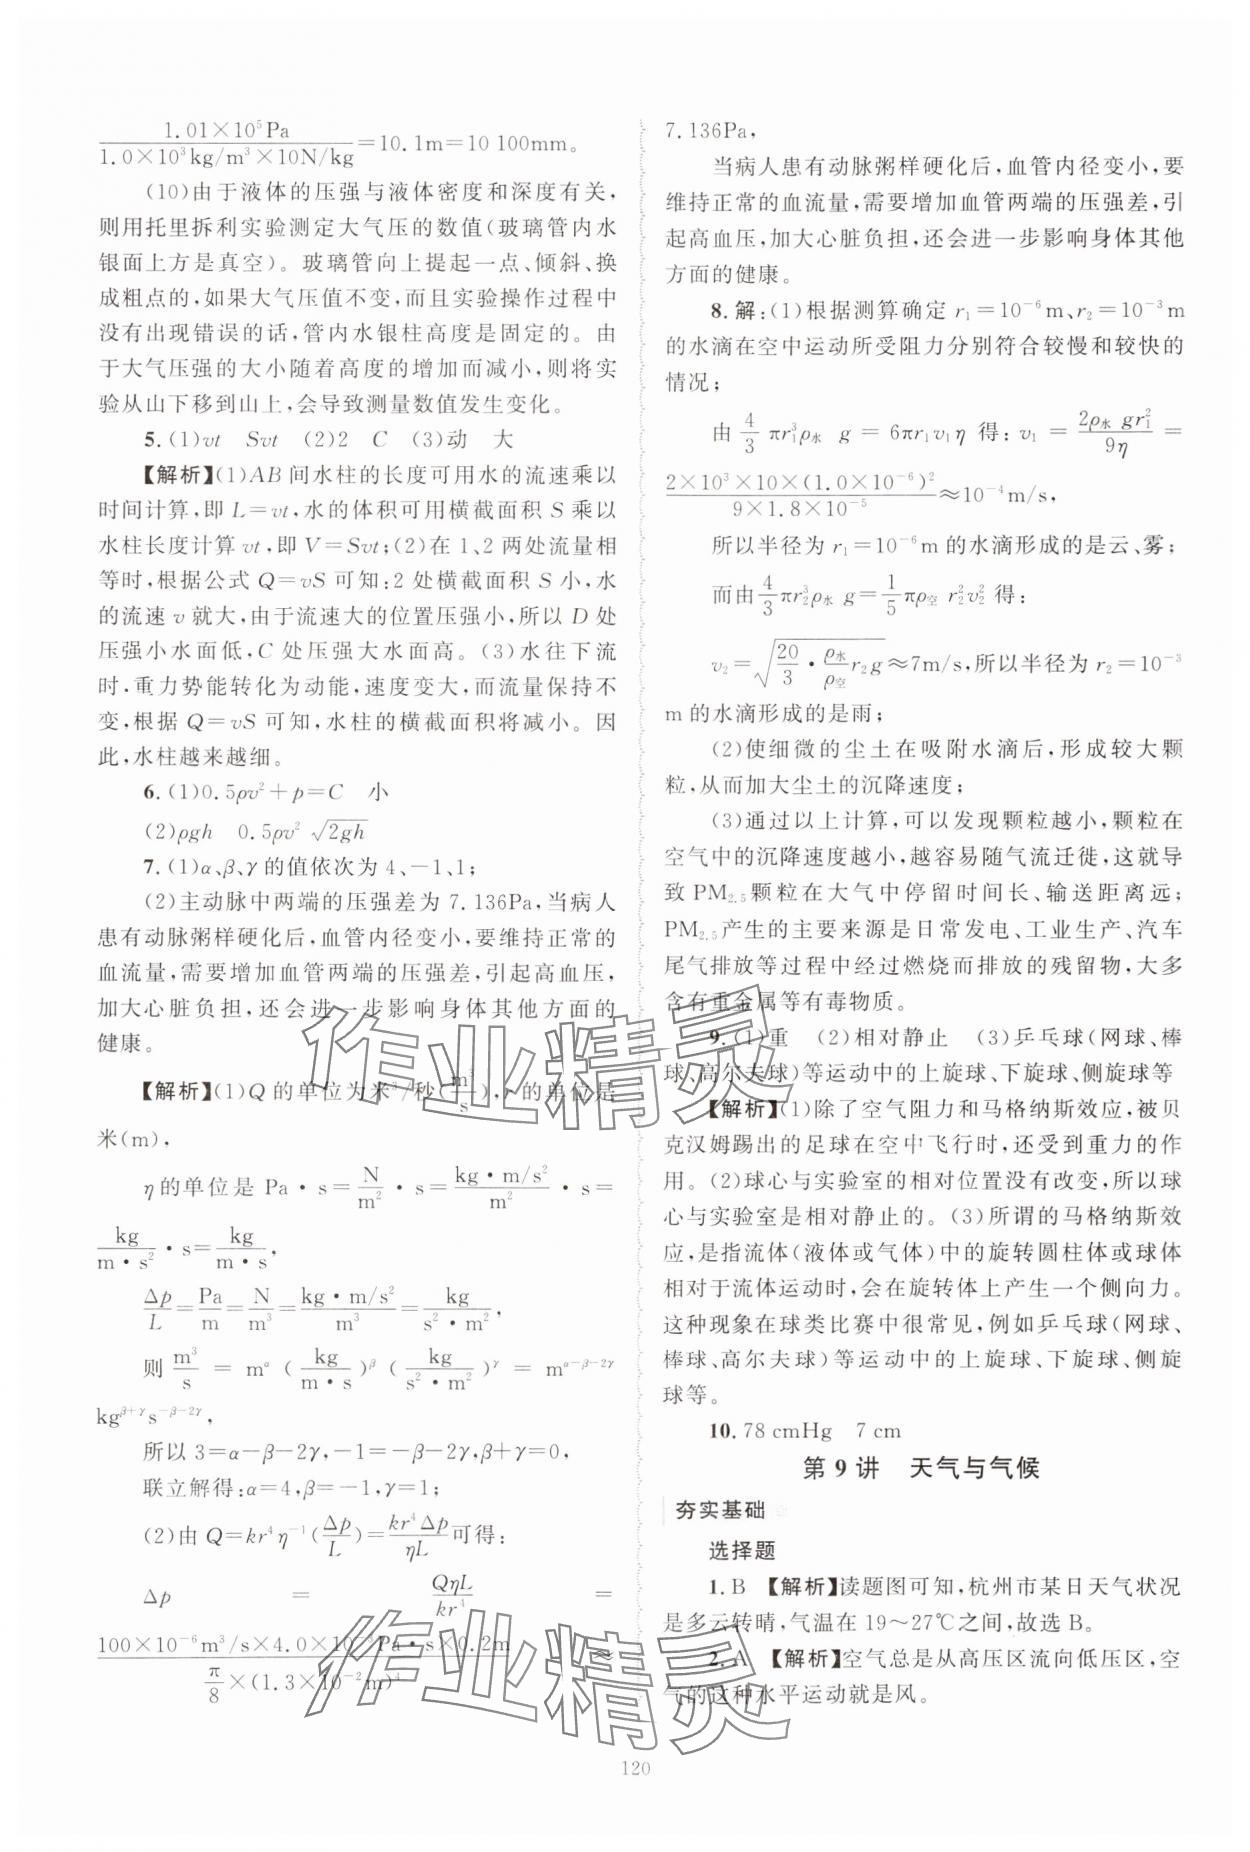 1.01×10⁵Pa
────────────────────
1.0×10³kg/m³×10N/kg =10.1m=10 100mm。
(10)由于液体的压强与液体密度和深度有关,
则用托里拆利实验测定大气压的数值(玻璃管内水
银面上方是真空)。玻璃管向上提起一点、倾斜、换
成粗点的,如果大气压值不变,而且实验操作过程中
没有出现错误的话,管内水银柱高度是固定的。由
于大气压强的大小随着高度的增加而减小,则将实
验从山下移到山上,会导致测量数值发生变化。
5.(1)vt Svt (2)2 C (3)动 大
【解析】(1)AB间水柱的长度可用水的流速乘以
时间计算,即L=vt,水的体积可用横截面积S乘以
水柱长度计算vt,即V=Svt;(2)在1、2两处流量相
等时,根据公式Q=vS可知:2处横截面积S小,水
的流速v就大,由于流速大的位置压强小,所以D处
压强小水面低,C处压强大水面高。(3)水往下流
时,重力势能转化为动能,速度变大,而流量保持不
变,根据Q=vS可知,水柱的横截面积将减小。因
此,水柱越来越细。
6.(1)0.5ρv²+p=C 小
(2)ρgh 0.5ρv² √(2gh)
7.(1)α、β、γ的值依次为4、-1、1;
(2)主动脉中两端的压强差为7.136Pa,当病人
患有动脉粥样硬化后,血管内径变小,要维持正常的
血流量,需要增加血管两端的压强差,引起高血压,
加大心脏负担,还会进一步影响身体其他方面的
健康。
【解析】(1)Q的单位为米³/秒(m³/s),r的单位是
米(m),
η的单位是Pa·s=N/m²·s=(kg·m/s²)/m²·s=
kg/(m·s²)·s=kg/(m·s),
Δp/L=Pa/m=N/m³=(kg·m/s²)/m³=kg/(s²·m²),
则 m³/s = mᵅ (kg/(m·s))ᵝ (kg/(s²·m²))ᵞ = m^(α-β-2γ)
kg^(β+γ)s^(-β-2γ),
所以3=α-β-2γ,-1=-β-2γ,β+γ=0,
联立解得:α=4,β=-1,γ=1;
(2)由Q=kr⁴η⁻¹(Δp/L)=kr⁴Δp/(ηL)可得:
Δp = QηL/kr⁴ =
(100×10⁻⁶m³/s×4.0×10⁻³Pa·s×0.2m)/(π/8×(1.3×10⁻²m)⁴) ≈
7.136Pa,
当病人患有动脉粥样硬化后,血管内径变小,要
维持正常的血流量,需要增加血管两端的压强差,引
起高血压,加大心脏负担,还会进一步影响身体其他
方面的健康。
8.解:(1)根据测算确定r₁=10⁻⁶m、r₂=10⁻³m
的水滴在空中运动所受阻力分别符合较慢和较快的
情况;
由 4/3 πr₁³ρ水 g = 6πr₁v₁η 得:v₁ = 2ρ水 gr₁²/9η =
(2×10³×10×(1.0×10⁻⁶)²)/(9×1.8×10⁻⁵)≈10⁻⁴m/s,
所以半径为r₁=10⁻⁶m的水滴形成的是云、雾;
而由4/3πr₂³ρ水 g=1/5πρ空 r₂²v₂²得:
v₂=√(20/3·ρ水/ρ空 r₂g)≈7m/s,所以半径为r₂=10⁻³
m的水滴形成的是雨;
(2)使细微的尘土在吸附水滴后,形成较大颗
粒,从而加大尘土的沉降速度;
(3)通过以上计算,可以发现颗粒越小,颗粒在
空气中的沉降速度越小,越容易随气流迁徙,这就导
致PM₂.₅颗粒在大气中停留时间长、输送距离远;
PM₂.₅产生的主要来源是日常发电、工业生产、汽车
尾气排放等过程中经过燃烧而排放的残留物,大多
含有重金属等有毒物质。
9.(1)重 (2)相对静止 (3)乒乓球(网球、棒
球、高尔夫球)等运动中的上旋球、下旋球、侧旋球等
【解析】(1)除了空气阻力和马格纳斯效应,被贝
克汉姆踢出的足球在空中飞行时,还受到重力的作
用。(2)球心与实验室的相对位置没有改变,所以球
心与实验室是相对静止的。(3)所谓的马格纳斯效
应,是指流体(液体或气体)中的旋转圆柱体或球体
相对于流体运动时,会在旋转体上产生一个侧向力。
这种现象在球类比赛中很常见,例如乒乓球(网球、
棒球、高尔夫球)等运动中的上旋球、下旋球、侧旋
球等。
10.78 cmHg 7 cm
第9讲 天气与气候
夯实基础
选择题
1.B 【解析】读题图可知,杭州市某日天气状况
是多云转晴,气温在19～27℃之间,故选B。
2.A 【解析】空气总是从高压区流向低压区,空
气的这种水平运动就是风。
作业精灵
作业精灵
120